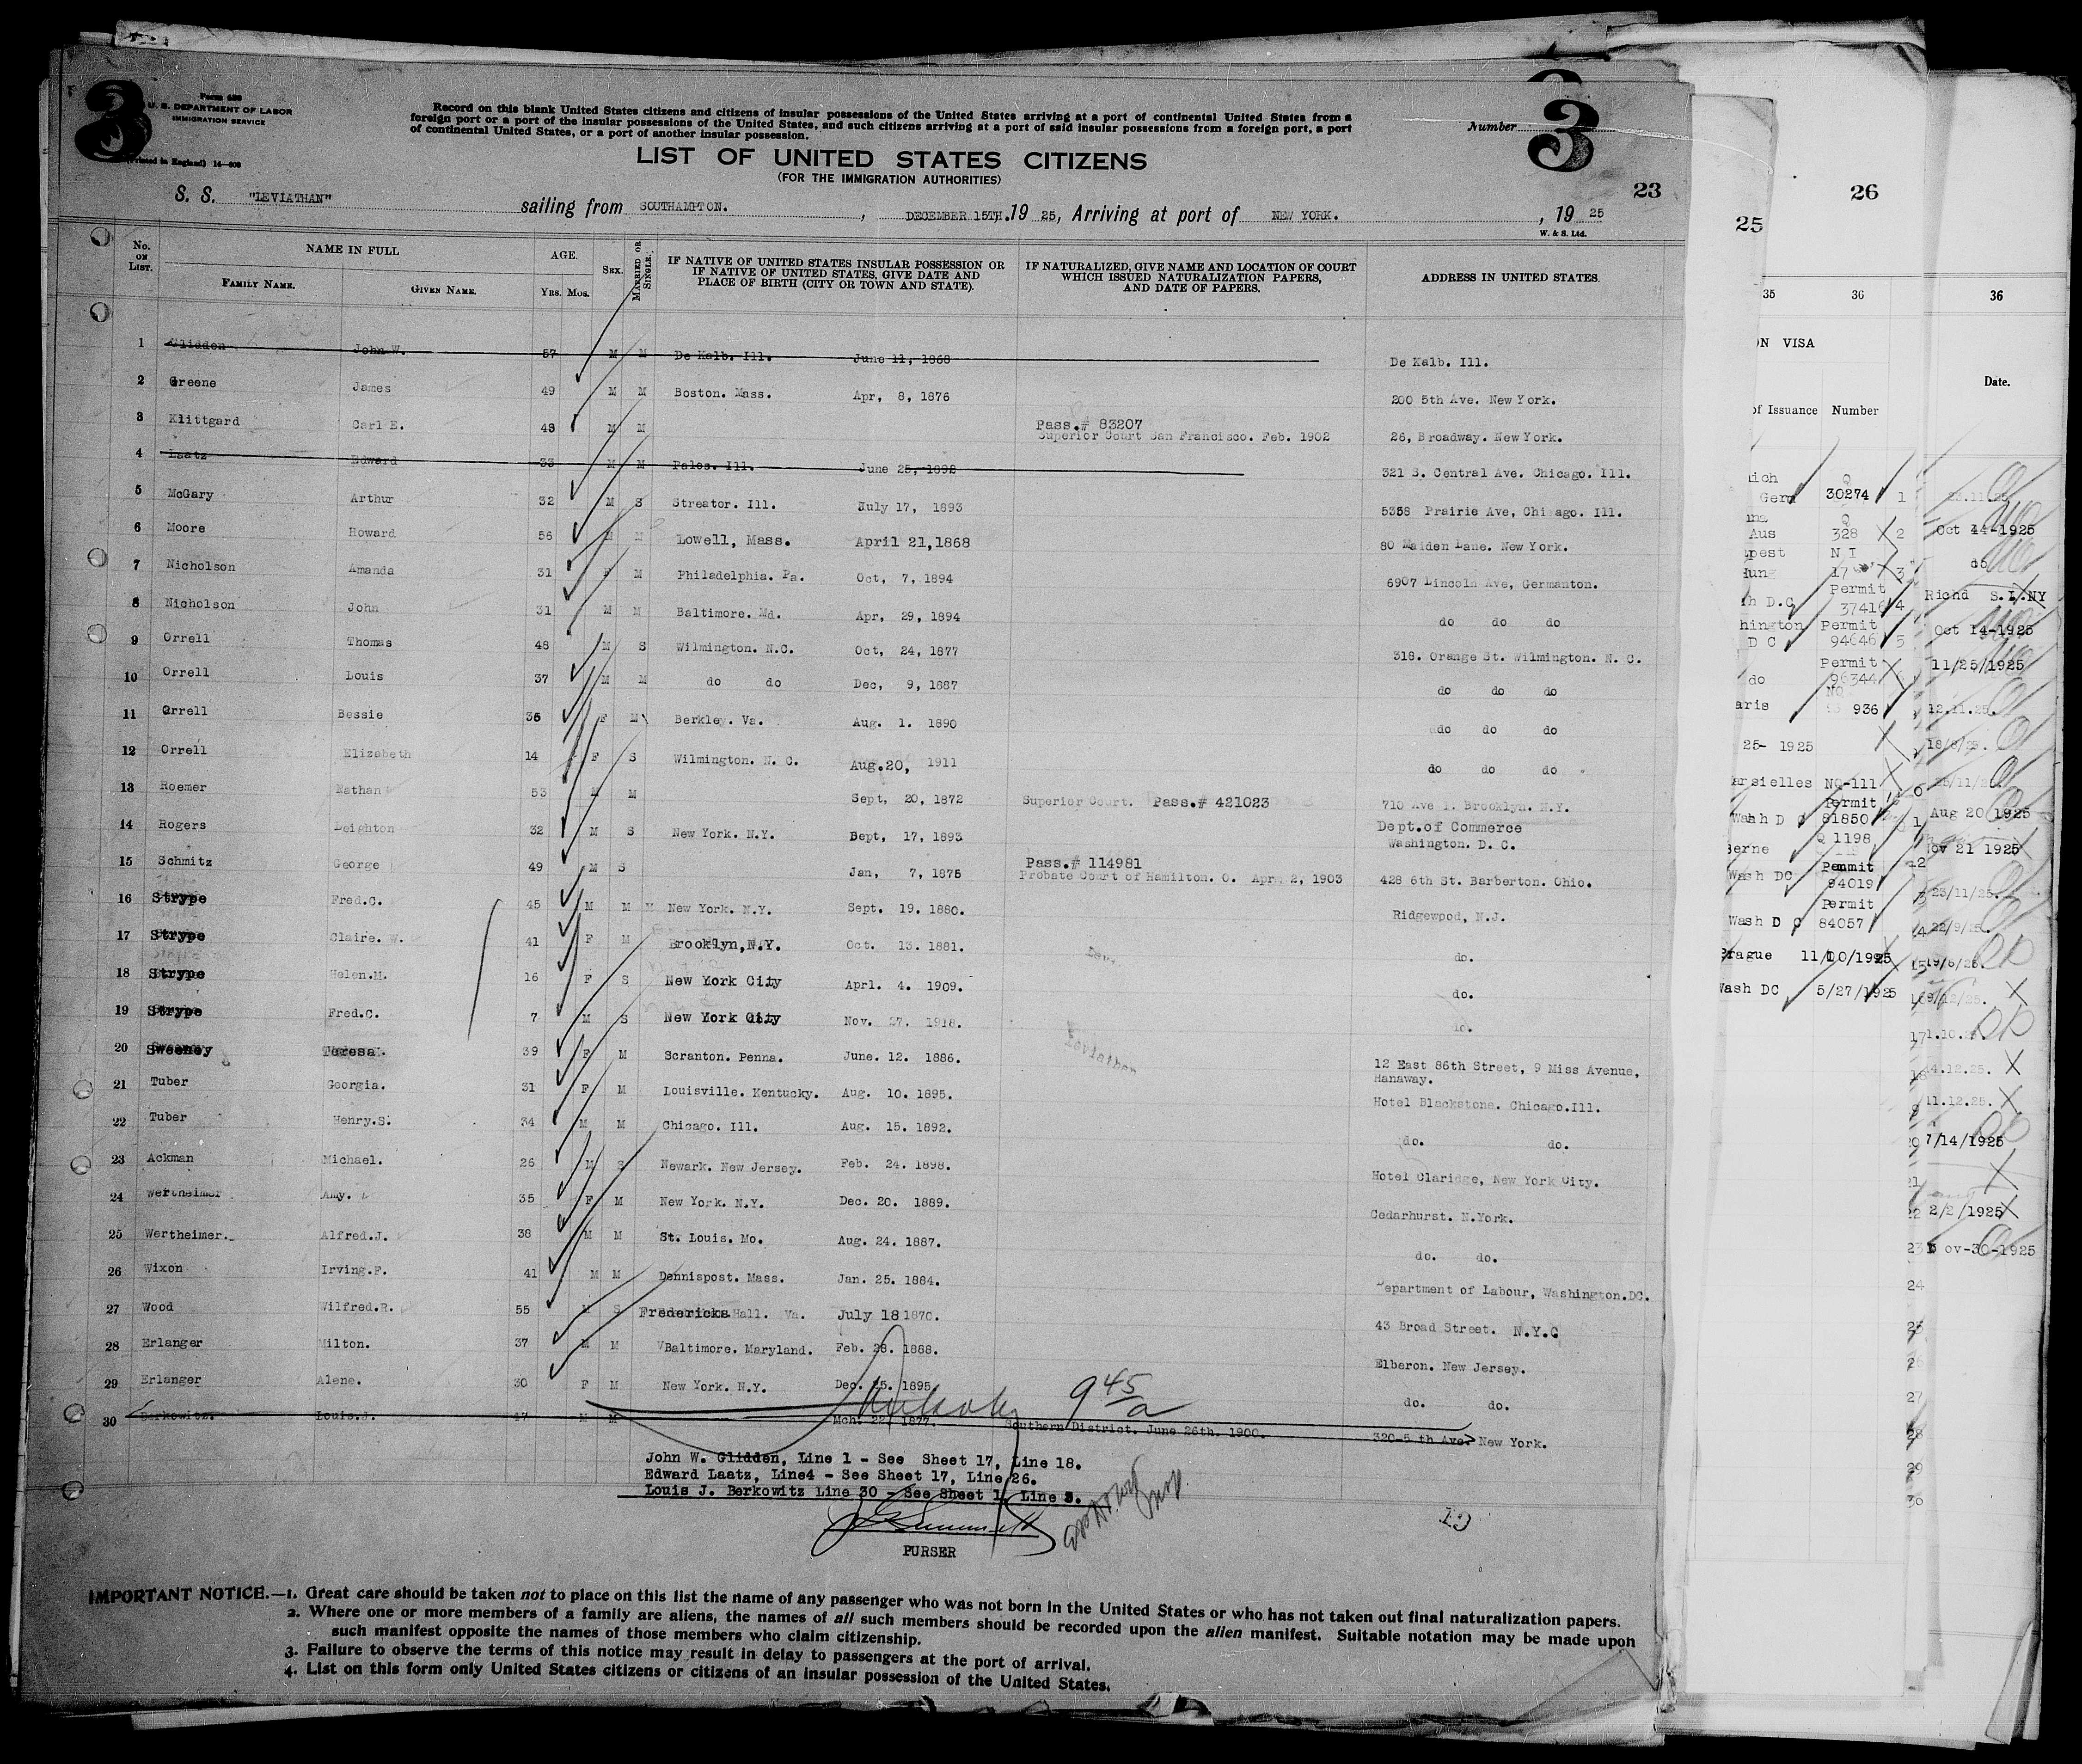 3
Form 630
U. S. DEPARTMENT OF LABOR
IMMIGRATION SERVICE
(Printed in England) 14—608
Record on this blank United States citizens and citizens of insular possessions of the United States arriving at a port of continental United States from a
foreign port or a port of the insular possessions of the United States, and such citizens arriving at a port of said insular possessions from a foreign port, a port
of continental United States, or a port of another insular possession.
Number 3
LIST OF UNITED STATES CITIZENS
(FOR THE IMMIGRATION AUTHORITIES)
23
S. S. "LEVIATHAN" sailing from SOUTHAMPTON. , DECEMBER 15TH. 19 25, Arriving at port of NEW YORK. , 19 25
W. & S. Ltd.
No. ON LIST. NAME IN FULL AGE. SEX. MARRIED OR SINGLE. IF NATIVE OF UNITED STATES INSULAR POSSESSION OR IF NATIVE OF UNITED STATES, GIVE DATE AND PLACE OF BIRTH (CITY OR TOWN AND STATE). IF NATURALIZED, GIVE NAME AND LOCATION OF COURT WHICH ISSUED NATURALIZATION PAPERS, AND DATE OF PAPERS. ADDRESS IN UNITED STATES.
FAMILY NAME. GIVEN NAME. YRS. MOS.
1 Glidden John W. 57 M M De Kalb. Ill. June 11, 1868 De Kalb. Ill.
2 Greene James 49 M M Boston. Mass. Apr, 8, 1876 200 5th Ave. New York.
3 Klittgard Carl E. 48 M M Pass.# 83207 Superior Court San Francisco. Feb. 1902 26, Broadway. New York.
4 Laatz Edward 33 M M Palos. Ill. June 25, 1892 321 S. Central Ave. Chicago. Ill.
5 McGary Arthur 32 M S Streator. Ill. July 17, 1893 5358 Prairie Ave, Chicago. Ill.
6 Moore Howard 56 M M Lowell, Mass. April 21, 1868 80 Maiden Lane. New York.
7 Nicholson Amanda 31 F M Philadelphia. Pa. Oct, 7, 1894 6907 Lincoln Ave, Germanton.
8 Nicholson John 31 M M Baltimore. Md. Apr, 29, 1894 do do do
9 Orrell Thomas 48 M S Wilmington. N.C. Oct, 24, 1877 318. Orange St. Wilmington. N. C.
10 Orrell Louis 37 M M do do Dec, 9, 1887 do do do
11 Orrell Bessie 35 F M Berkley. Va. Aug. 1. 1890 do do do
12 Orrell Elizabeth 14 F S Wilmington. N. C. Aug.20, 1911 do do do
13 Roemer Nathan 53 M M Sept, 20, 1872 Superior Court. Pass.# 421023 710 Ave I. Brooklyn. N.Y.
14 Rogers Leighton 32 M S New York. N.Y. Sept, 17, 1893 Dept.of Commerce Washington. D. C.
15 Schmitz George 49 M S Jan, 7, 1876 Pass.# 114981 Probate Court of Hamilton. O. Apr. 2, 1903 428 6th St. Barberton. Ohio.
16 Strype Fred.C. 45 M M M New York. N.Y. Sept. 19. 1880. Ridgewood, N.J.
17 Strype Claire. W. 41 F M Brooklyn,N.Y. Oct. 13. 1881. do.
18 Strype Helen.M. 16 F S New York City Aprl. 4. 1909. do.
19 Strype Fred.C. 7 M S New York City Nov. 27. 1918. do.
20 Sweeney Teresa. 39 F M Scranton. Penna. June. 12. 1886. 12 East 86th Street, 9 Miss Avenue, Hanaway.
Leviathan
21 Tuber Georgia. 31 F M Louisville. Kentucky. Aug. 10. 1895. Hotel Blackstone. Chicago.Ill.
22 Tuber Henry.S. 34 M M Chicago. Ill. Aug. 15. 1892. do. do.
23 Ackman Michael. 26 M S Newark. New Jersey. Feb. 24. 1898. Hotel Claridge, New York City.
24 Wertheimer Amy. 35 F M New York. N.Y. Dec. 20. 1889. Cedarhurst. N.York.
25 Wertheimer. Alfred.J. 38 M M St. Louis. Mo. Aug. 24. 1887. do. do.
26 Wixon Irving.F. 41 M M Dennispost. Mass. Jan. 25. 1884. Department of Labour, Washington.DC.
27 Wood Wilfred.R. 55 M S Fredericks Hall. Va. July 18 1870. 43 Broad Street. N.Y.C
28 Erlanger Milton. 37 M M Baltimore. Maryland. Feb. 28. 1888. Elberon. New Jersey.
29 Erlanger Alene. 30 F M New York. N.Y. Dec. 25. 1895. do. do.
9 45/a
30 Berkowitz. Louis.J. 47 M M Mch. 22, 1877. Southern District. June 26th. 1900. 320-5 th Ave. New York.
John W. Glidden, Line 1 - See Sheet 17, Line 18.
Edward Laatz, Line4 - See Sheet 17, Line 26.
Louis J. Berkowitz Line 30 - See Sheet 1, Line 3.
PURSER
IMPORTANT NOTICE.—1. Great care should be taken not to place on this list the name of any passenger who was not born in the United States or who has not taken out final naturalization papers.
2. Where one or more members of a family are aliens, the names of all such members should be recorded upon the alien manifest. Suitable notation may be made upon
such manifest opposite the names of those members who claim citizenship.
3. Failure to observe the terms of this notice may result in delay to passengers at the port of arrival.
4. List on this form only United States citizens or citizens of an insular possession of the United States.
25
26
35 36
ON VISA
of Issuance Number
Germ 30274
Aus 328
N I
Hung 17
Permit
h D.C 37416
hington Permit
D C 94646
Permit
do 96344
aris 936
25- 1925
arsielles NQ-111
Permit
Wash D C 81850
Berne Q 1198
Permit
Wash DC 94019
Permit
Wash D C 84057
Prague 11/10/1925
Wash DC 5/27/1925
36
Date.
1
2 Oct 14-1925
3 do
4 Richd S.I.NY
5 Oct 14-1925
11/25/1925
12.11.25.
Aug 20 1925
Nov 21 1925
23/11/25.
22/9/25.
14.12.25.
11.12.25.
7/14/1925
21
22 2/2/1925
23 Nov-30-1925
24
25
26
27
28
29
30